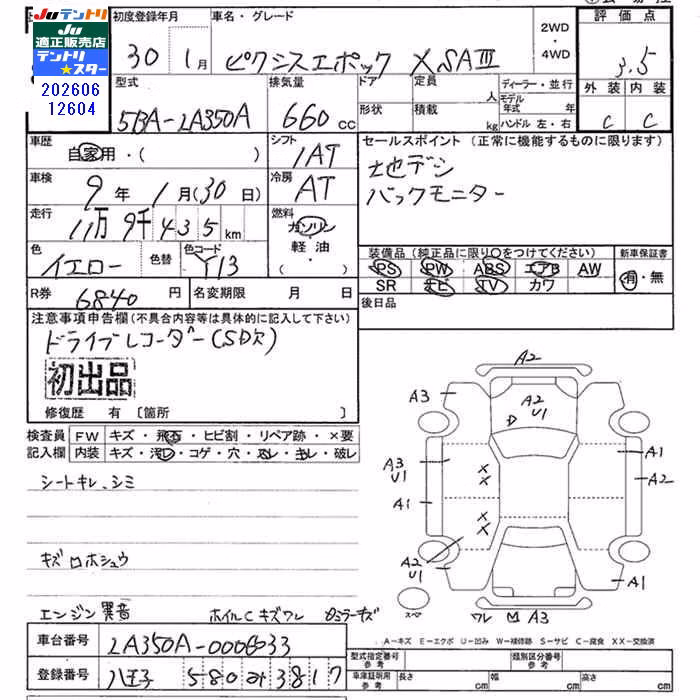 Juテントリ
Ju
適正販売店
テントリ
★スター
202606
12604
初度登録年月
30 1月
車名・グレード
ピクシスエポック XSAⅢ
2WD
・
4WD
評価点
3.5
外装 内装
C C
型式
5BA-LA350A
排気量
660 CC
ドア
形状
定員 人
積載 kg
ディーラー・並行
モデル年式 年
ハンドル 左・右
車歴
自家用・( )
シフト
IAT
セールスポイント (正常に機能するものに限ります)
地デジ
バックモニター
車検
9年 1月(30日)
冷房
AT
走行
11万 9千 4 3 5 km
燃料
ガソリン
軽油
・( )
色
イエロー
色替
色コード
Y13
装備品(純正品に限り○をつけてください)
新車保証書
PS PW ABS エアB AW
SR ナビ TV カワ
有・無
R券
6840 円
名変期限 月 日
後日品
注意事項申告欄(不具合内容等は具体的に記入して下さい)
ドライブレコーダー(SD欠)
初出品
修復歴 有 [箇所 ]
検査員
記入欄
FW キズ・飛石・ヒビ割・リペア跡・×要
内装 キズ・汚レ・コゲ・穴・スレ・キレ・破レ
シートキレ、シミ
キズロホシュウ
エンジン異音
ホイルCキズワレ
Aミラーキズ
A2
A3
A2
U1
D
A1
A2
A3
U1
A1
A2
U1
A1
スペア
ワレ
M
A3
× × × ×
A-キズ E-エクボ U-凹み W-補修跡 S-サビ C-腐食 XX-交換済
車台番号
LA350A-0006033
登録番号
八王子 580 み 3817
型式指定番号
参考
類別区分番号
参考
車庫証明用
参考
長さ cm
幅 cm
高さ cm